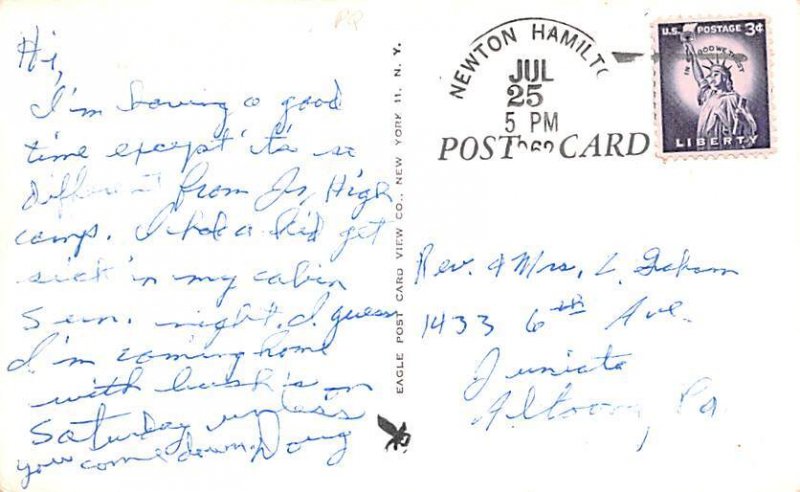 Hi,
I'm having a good
time except its so
different from Jr. High
camp. I had a kid get
sick in my cabin
Sun. night. I guess
I'm coming home
with on
Saturday unless
you come down. Doug
EAGLE POST CARD VIEW CO., NEW YORK 11, N. Y.
NEWTON HAMILTO
JUL
25
5 PM
POST CARD
U.S. POSTAGE 3¢
IN GOD WE TRUST
LIBERTY
Rev. & Mrs. L.
1433 6th Ave.
Juniata
Altoona, Pa
PQ